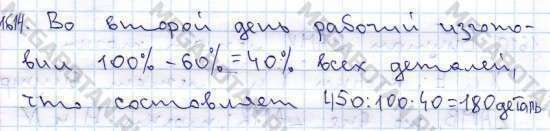 1614. Во второй день рабочий изгото-
вил 100% - 60% = 40% всех деталей,
что составляет 450:100·40=180 деталь